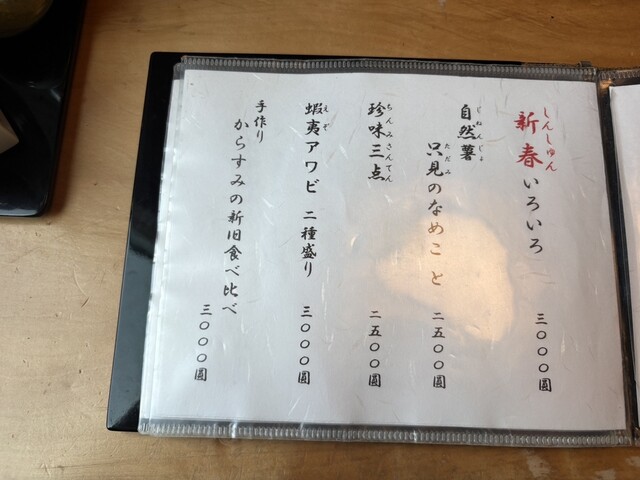 しんしゅん
新春いろいろ
三〇〇〇圓
じねんじょ
自然薯
ただみ
只見のなめこと
二五〇〇圓
ちんみさんてん
珍味三点
二五〇〇圓
えぞ
蝦夷アワビ 二種盛り
三〇〇〇圓
手作り
からすみの新旧食べ比べ
三〇〇〇圓